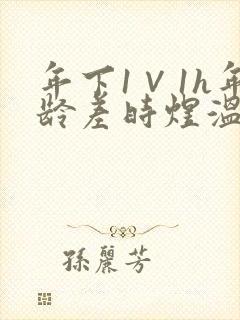 年下1∨1h年
龄差时煜温
孫麗芳